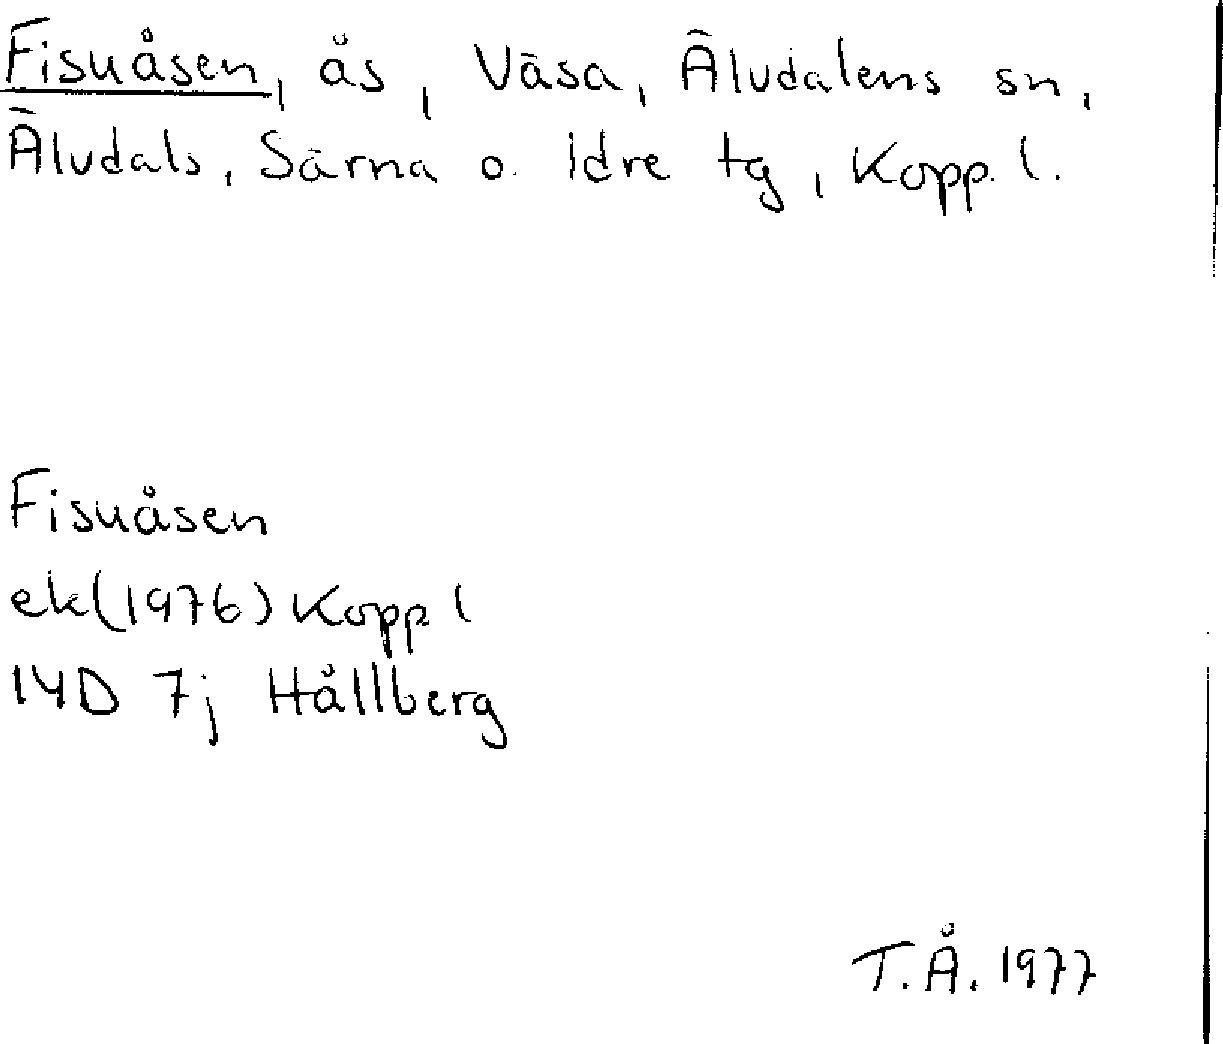 Fisuåsen, ås, Väsa, Älvdalens sn,
Älvdals, Särna o. Idre tg, Kopp. l.
Fisuåsen
ek(1976) Kopp l
14D 7j Hållberg
T.Å. 1977